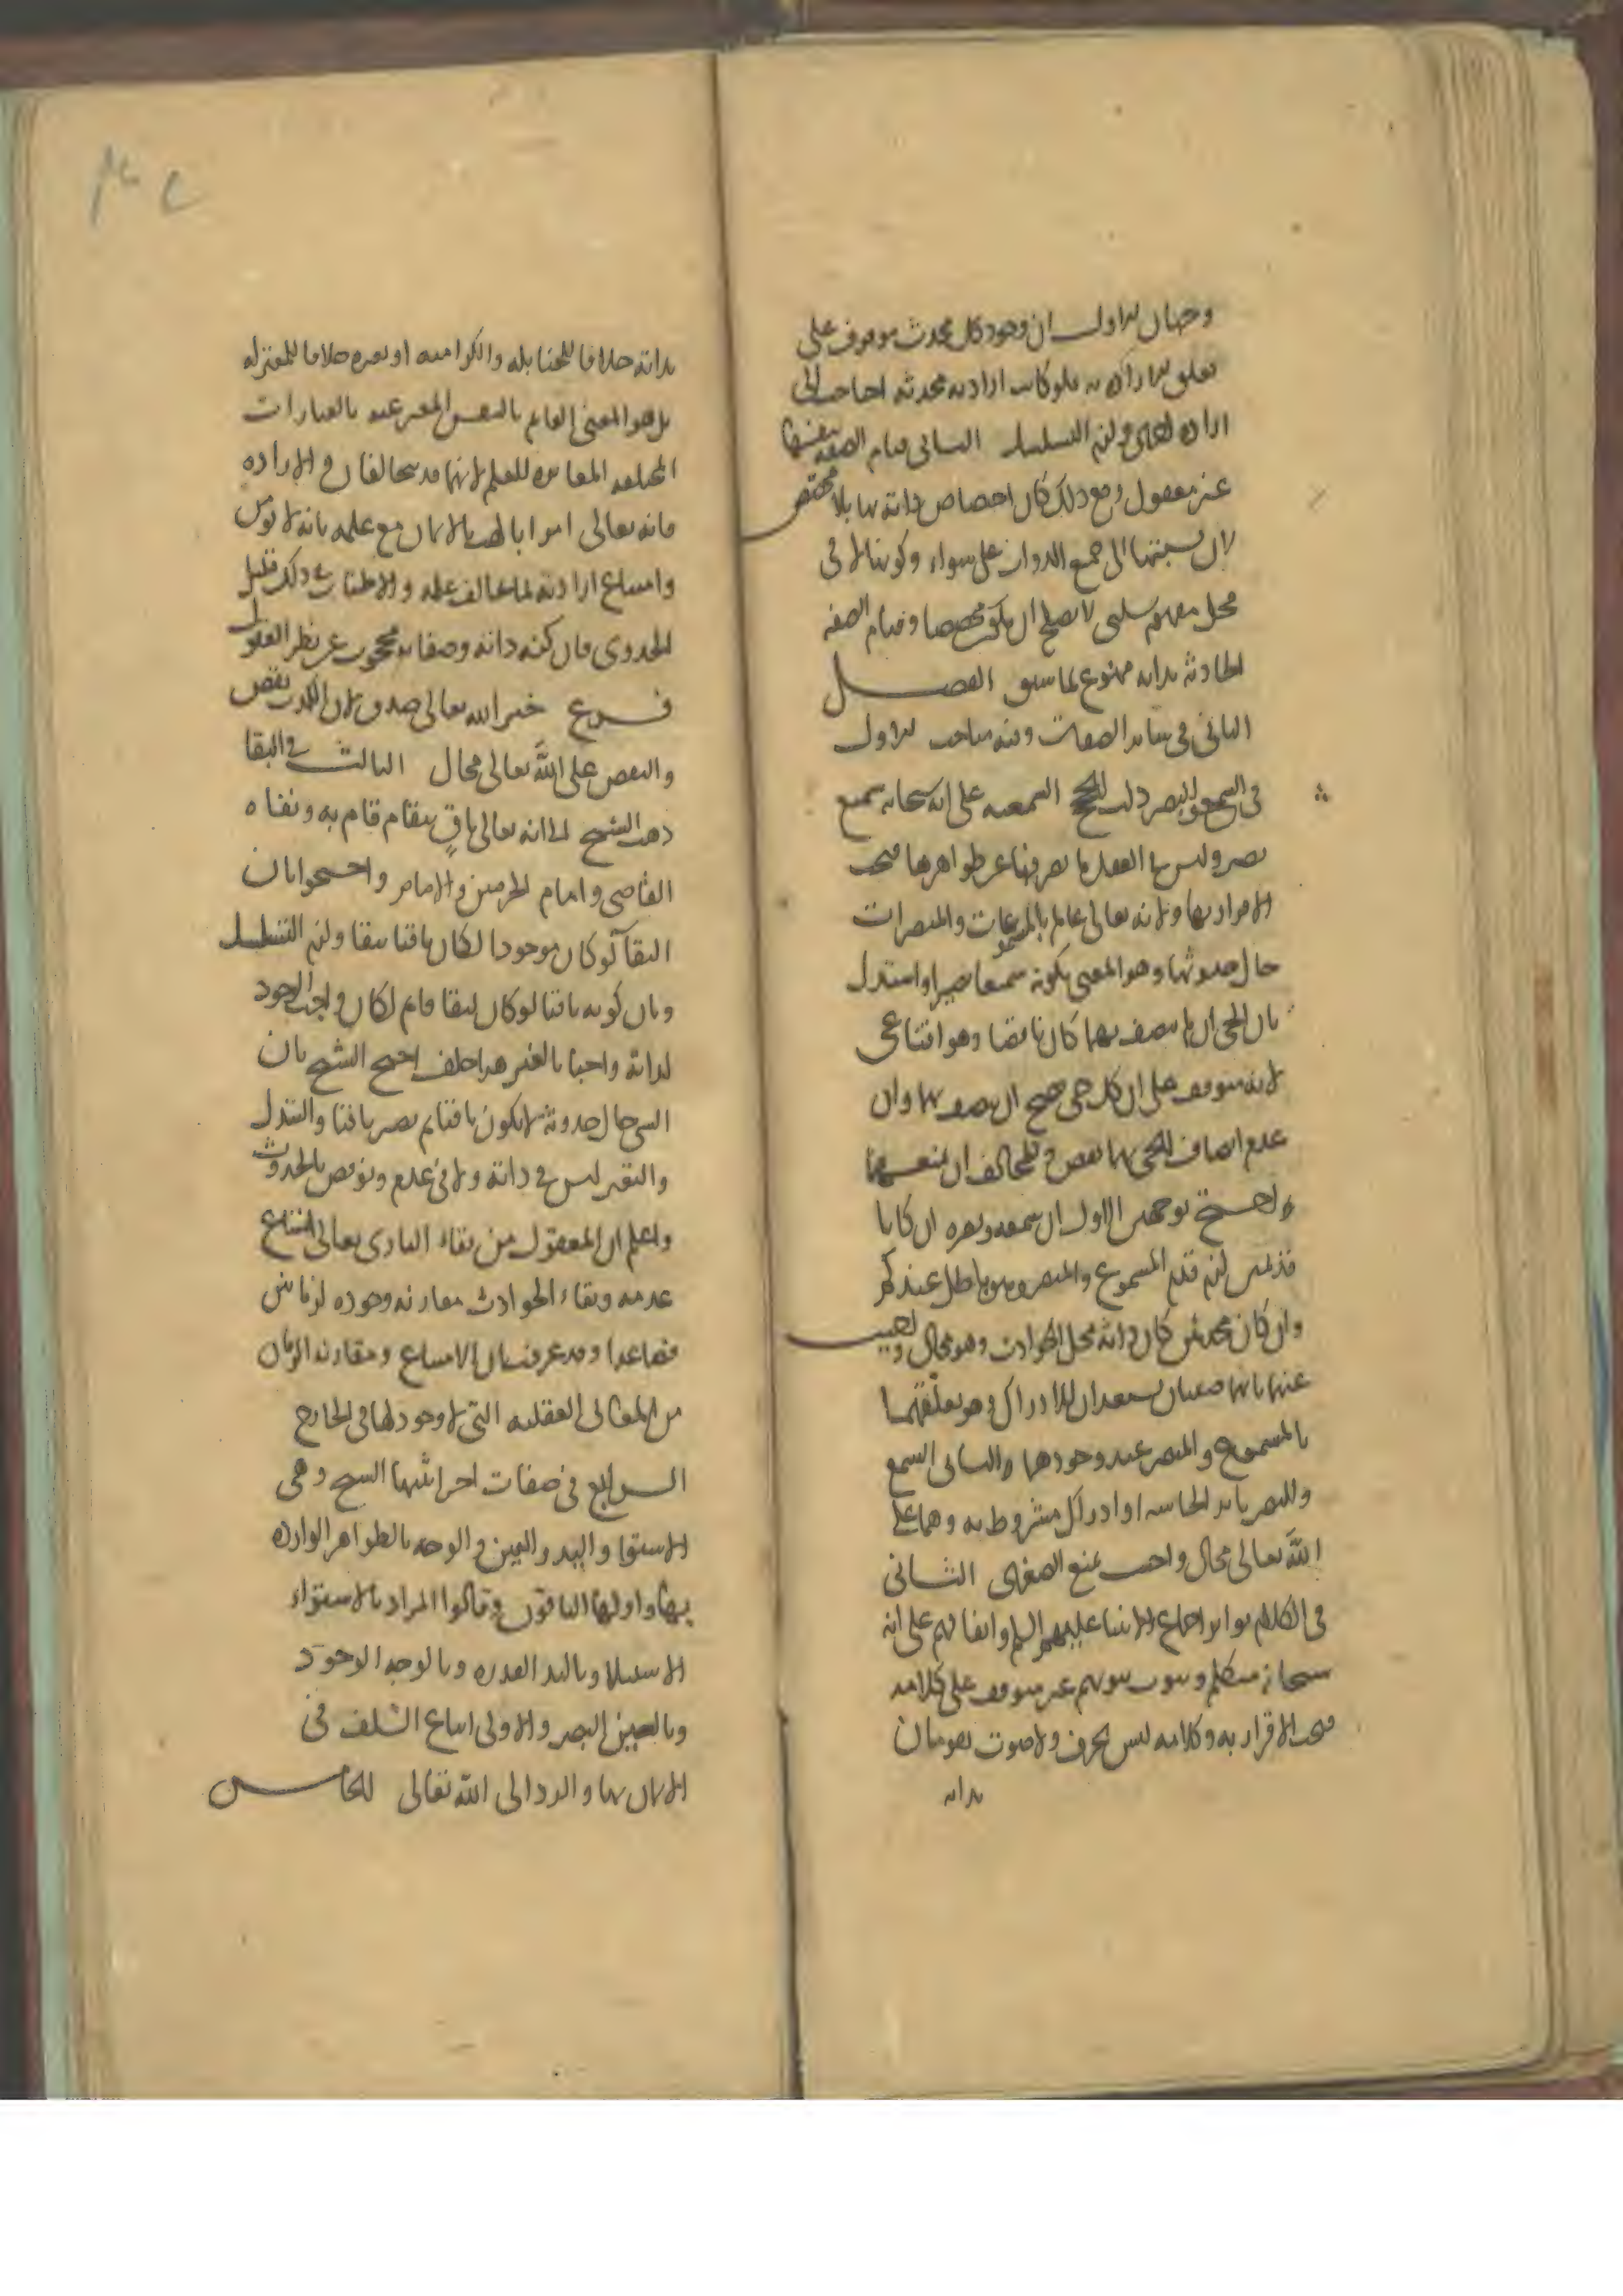 وجهان الاول ان وجود كل محدث موقوف على
تعلق الارادة به فلو كانت ارادته محدثه احتاجت الى
ارادة اخرى ولزم التسلسل الثاني قيام الصفه بنفسها
غير معقول ومع ذلك كان اختصاص ذاته بها بلا مخصص
لان نسبتها الى جميع الذوات على سواء وكونها لا في
محل مفهوم سلبي لا يصلح ان يكون مخصصا وقيام الصفه
الحادثه بذاته ممنوع لما سبق الفصل
الثاني في سائر الصفات وفيه مباحث الاول
في السمع والبصر دلت الحجج السمعيه على انه سبحانه سميع
بصير وليس في العقل ما يصرفها عن ظواهرها فيجب
الاقرار بها ولانه تعالى عالم بالمسموعات والمبصرات
حال حدوثها وهو المعنى بكونه سميعا بصيرا واستدل
بان الحي ان لم يتصف بهما كان ناقصا وهو اقناعي
لانه متوقف على ان كل حي يصح ان يتصف بهما وان
عدم اتصاف الحي بهما نقص وللمخالف ان يمنعهما
واحتج بوجهين الاول ان سمعه وبصره ان كانا
قديمين لزم قدم المسموع والمبصر وهو باطل عندكم
وان كانا محدثين كان ذاته محل الحوادث وهو محال واجيب
عنه بانهما صفتان يستعدان للادراك وهو تعلقهما
بالمسموع والمبصر عند وجودهما والثاني السمع
والبصر تاثر الحاسه او ادراك مشروط به وهما على
الله تعالى محال واجيب بمنع الصغرى الثاني
في الكلام تواتر اجماع الانبياء عليهم السلم واتفاقهم على انه
سبحانه متكلم وثبوت نبوتهم غير متوقف على كلامه
فيجب الاقرار به وكلامه ليس بحرف ولا صوت يقومان
بذاته
بذاته خلافا للحنابله والكراميه او بغيره خلافا للمعتزله
بل هو المعنى القايم بالنفس المعبر عنه بالعبارات
المختلفه المغايره للعلم لانهما قد يتخالفان والاراده
فانه تعالى امر ابا لهب بالايمان مع علمه بانه لا يؤمن
وامتناع ارادته لما يخالف علمه والاطناب في ذلك قليل
الجدوى فان كنه ذاته وصفاته محجوب عن نظر العقول
فرع خبر الله تعالى صدق لان الكذب نقص
والنقص على الله تعالى محال الثالث في البقا
ذهب الشيخ الى انه تعالى باقٍ ببقاء قام به ونفاه
القاضي وامام الحرمين والامام واحتجوا بان
البقآ لو كان موجودا لكان باقيا ببقا ولزم التسلسل
وبان كونه باقيا لو كان لبقا قام لكان واجب الوجود
لذاته واجبا بالغير هذا خلف احتج الشيخ بان
الشي حال حدوثه لا يكون باقيا ثم يصير باقيا والتبدل
والتغير ليس في ذاته ولا في عدم ونوقض بالحدوث
واعلم ان المعقول من بقاء الباري تعالى امتناع
عدمه وبقاء الحوادث مقارنه وجوده لزمانين
فصاعدا وقد عرفت ان الامتناع ومقارنه الزمان
من المعاني العقليه التي لا وجود لها في الخارج
الرابع في صفات اخر اثبتها الشيخ وهي
الاستوا واليد والعين والوجه بالظواهر الوارده
بها واولها الباقون وقالوا المراد بالاستواء
الاستيلا وباليد القدره وبالوجه الوجود
وبالعين البصر والاولى اتباع السلف في
الايمان بها والرد الى الله تعالى الخامس